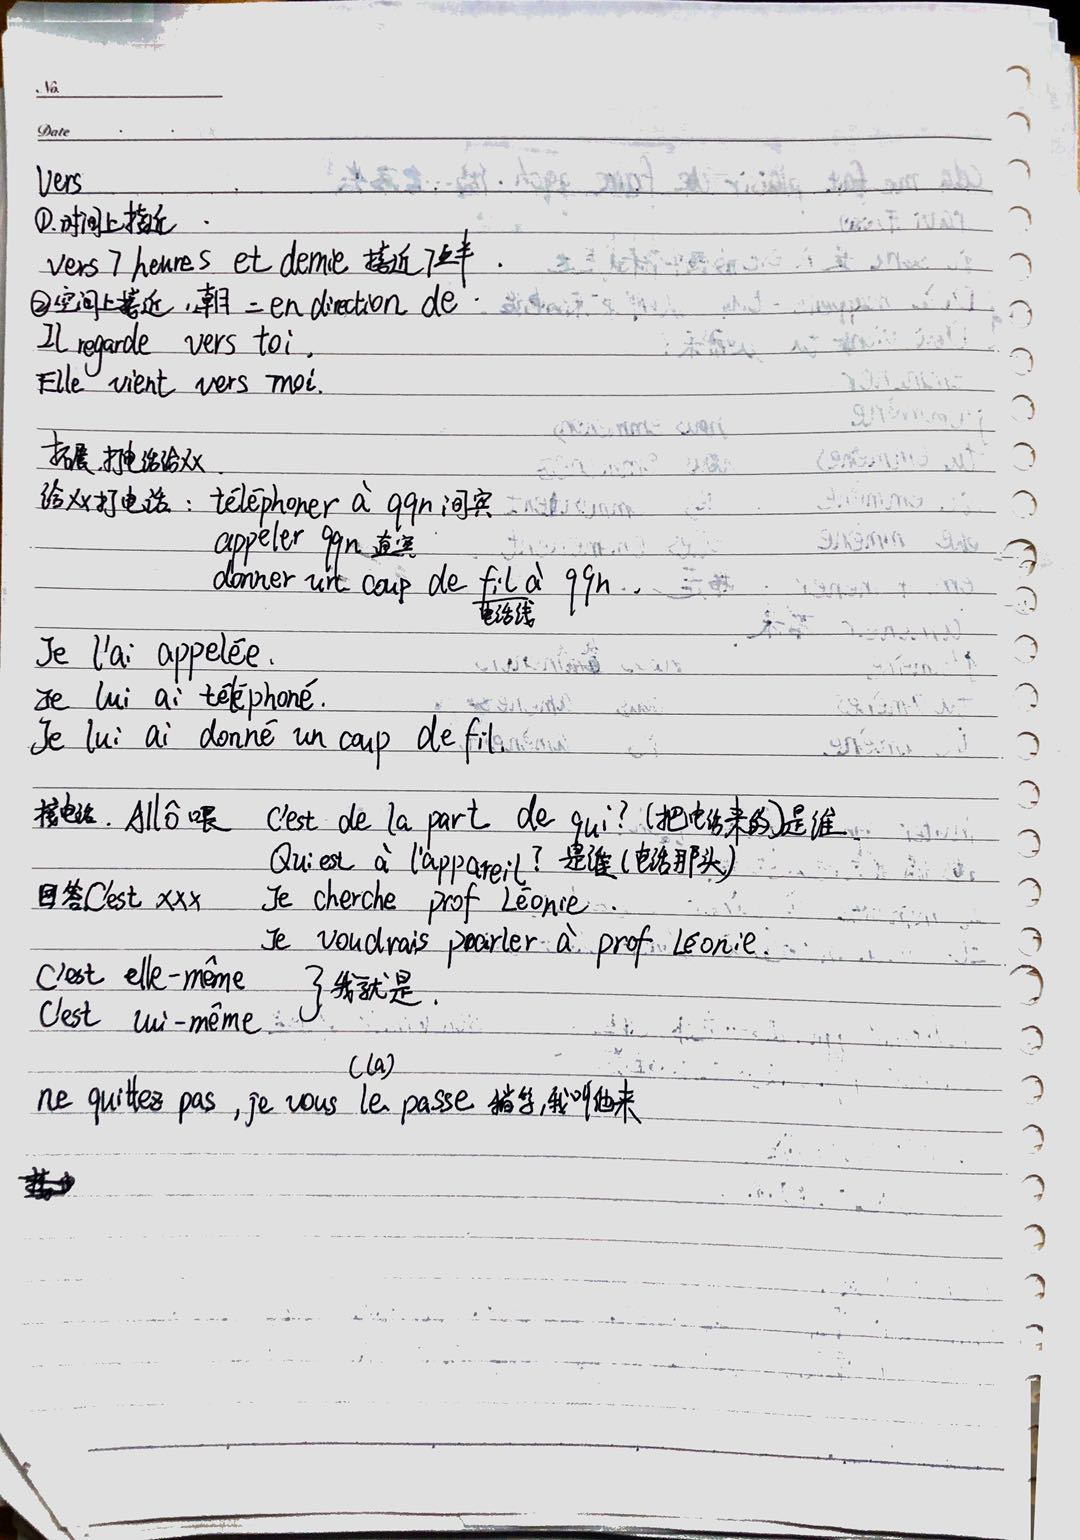 No.
Date
Vers
①.时间上接近
vers 7 heures et demie 接近7点半.
②空间上接近,朝 = en direction de
Il regarde vers toi.
Elle vient vers moi.
拓展.打电话给xx.
给xx打电话: téléphoner à qqn 间宾
appeler qqn 直宾
donner un coup de fil à qqn.
电话线
Je l'ai appelée.
Je lui ai téléphoné.
Je lui ai donné un coup de fil.
接电话. Allô 喂 C'est de la part de qui? (把电话来的)是谁
Qui est à l'appareil? 是谁(电话那头)
回答C'est xxx Je cherche prof Léonie.
Je voudrais parler à prof Léonie.
C'est elle-même }我就是.
C'est lui-même
(la)
ne quittez pas, je vous le passe 稍等,我叫他来